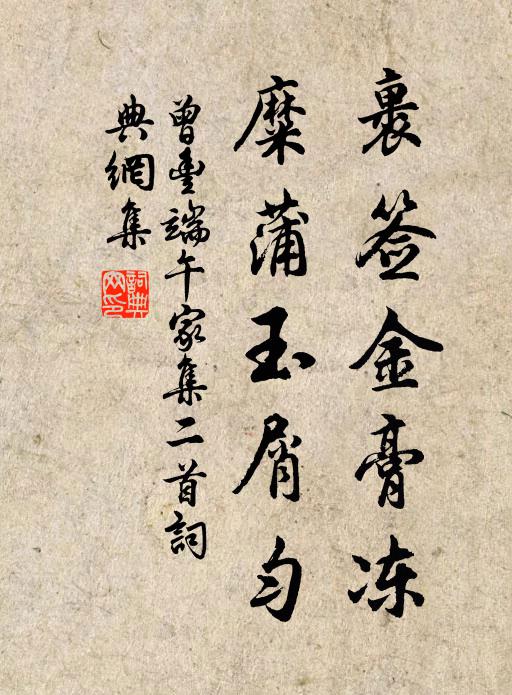 裹签金膏冻
糜蒲玉屑匀
曾豊端午家集二首詞
典網集
詞典网印